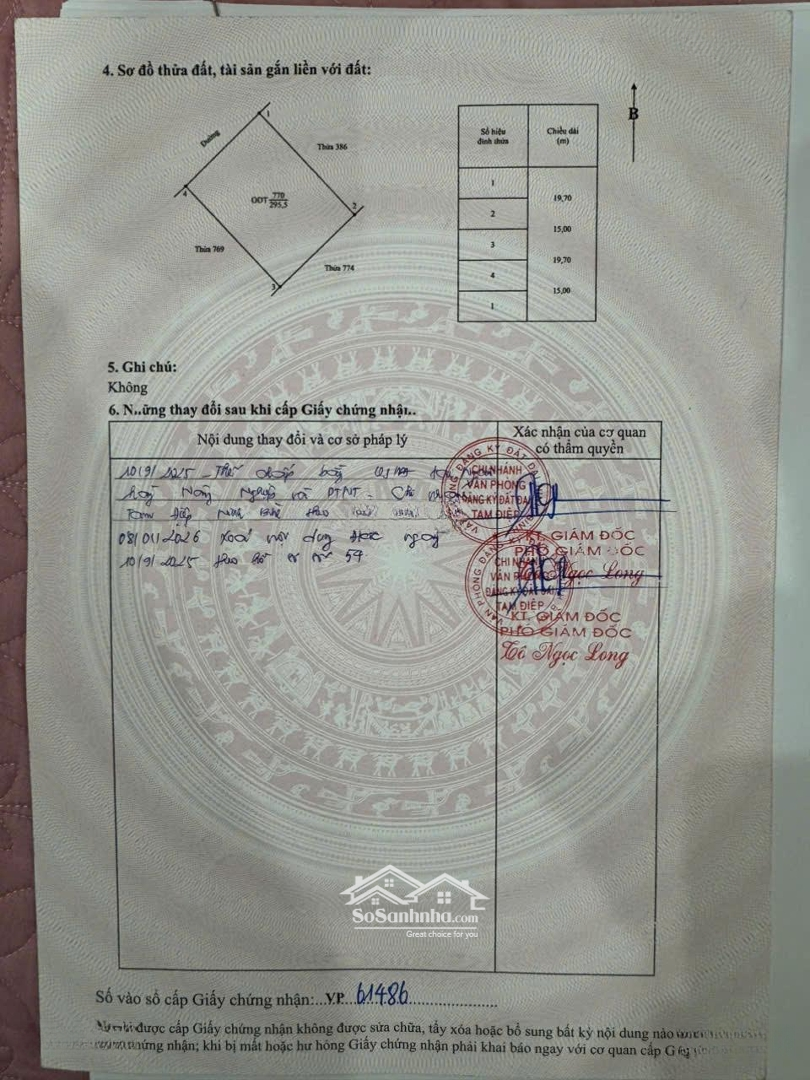 4. Sơ đồ thửa đất, tài sản gắn liền với đất:
B
1
Đường
Thửa 386
4
ODT 770
295,5
2
Thửa 769
Thửa 774
3
Số hiệu đỉnh thửa
Chiều dài (m)
1
19,70
2
15,00
3
19,70
4
15,00
1
5. Ghi chú:
Không
6. N..ững thay đổi sau khi cấp Giấy chứng nhậ..
Nội dung thay đổi và cơ sở pháp lý
Xác nhận của cơ quan
có thẩm quyền
10/9/2025 - Thế chấp bằng
Nông Nghiệp và PTNT - Chi
Tam Điệp
08/01/2026 Xoá nội dung ngày
10/9/2025 theo hồ sơ số 54
CHI NHÁNH
VĂN PHÒNG
ĐĂNG KÝ ĐẤT ĐAI
TAM ĐIỆP
KT. GIÁM ĐỐC
PHÓ GIÁM ĐỐC
Ngọc Long
CHI NHÁNH
VĂN PHÒNG
ĐĂNG KÝ ĐẤT ĐAI
TAM ĐIỆP
KT. GIÁM ĐỐC
PHÓ GIÁM ĐỐC
Tô Ngọc Long
SoSanhnha.com
Great choice for you
Số vào sổ cấp Giấy chứng nhận:...VP 61486
được cấp Giấy chứng nhận không được sửa chữa, tẩy xóa hoặc bổ sung bất kỳ nội dung nào
chứng nhận; khi bị mất hoặc hư hỏng Giấy chứng nhận phải khai báo ngay với cơ quan cấp